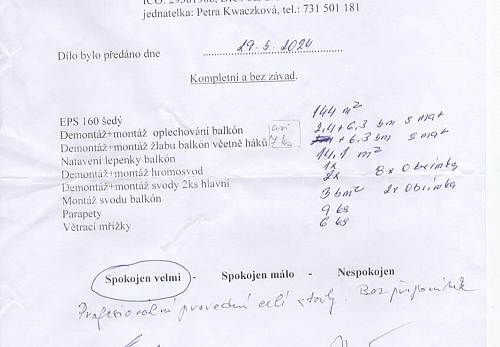 jednatelka: Petra Kwaczková, tel.: 731 501 181
Dílo bylo předáno dne 29.5.2024
Kompletní a bez závad.
EPS 160 šedý 144 m²
Demontáž+montáž oplechování balkón 2,4+6,3 bm
Demontáž+montáž žlabu balkón včetně háků 7 ks +6,3 bm
Natavení lepenky balkón 14,1 m²
Demontáž+montáž hromosvod 1x
Demontáž+montáž svody 2ks hlavní 2x 8x Objímka
Montáž svodu balkón 3 bm 2x Objímka
Parapety 9 ks
Větrací mřížky 6 ks
Spokojen velmi - Spokojen málo - Nespokojen
Profesionální provedení celé stavby. Bez připomínek